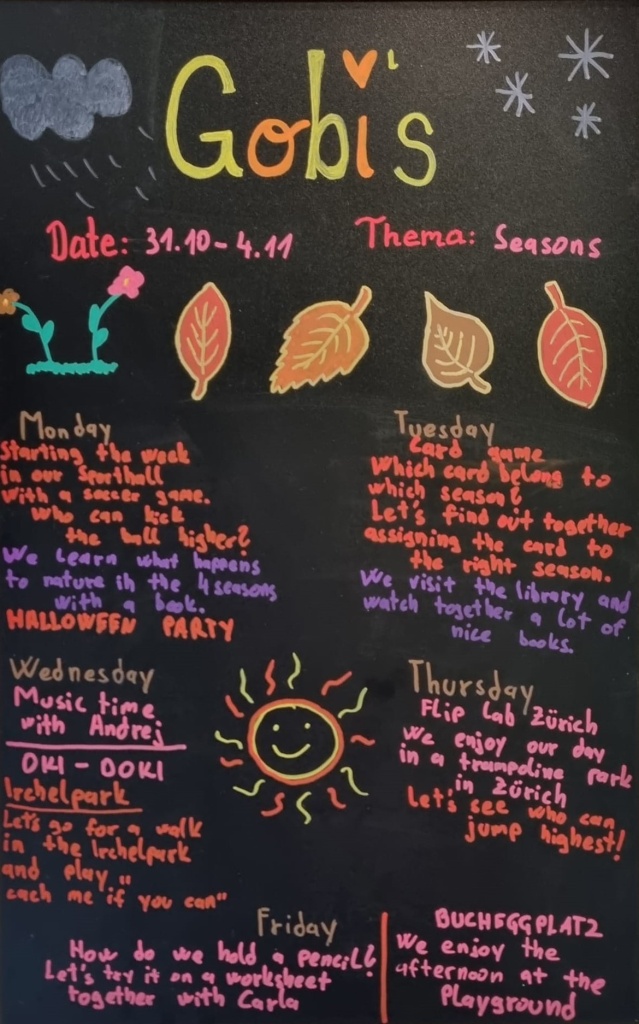 Gobi's
Date: 31.10 - 4.11
Thema: Seasons
Monday
Starting the week
in our Sporthall
with a soccer game.
Who can kick
the ball higher?
We learn what happens
to nature in the 4 seasons
with a book.
HALLOWEEN PARTY
Tuesday
Card game
Which card belong to
which season?
Let's find out together
assigning the card to
the right season.
We visit the library and
watch together a lot of
nice books.
Wednesday
Music time
with Andrej
OKI - DOKI
Irchelpark
Let's go for a walk
in the Irchelpark
and play "
cach me if you can"
Thursday
Flip Lab Zürich
We enjoy our day
in a trampoline park
in Zürich
Let's see who can
jump highest!
Friday
How do we hold a pencil?
Let's try it on a worksheet
together with Carla
BUCHEGGPLATZ
We enjoy the
afternoon at the
Playground